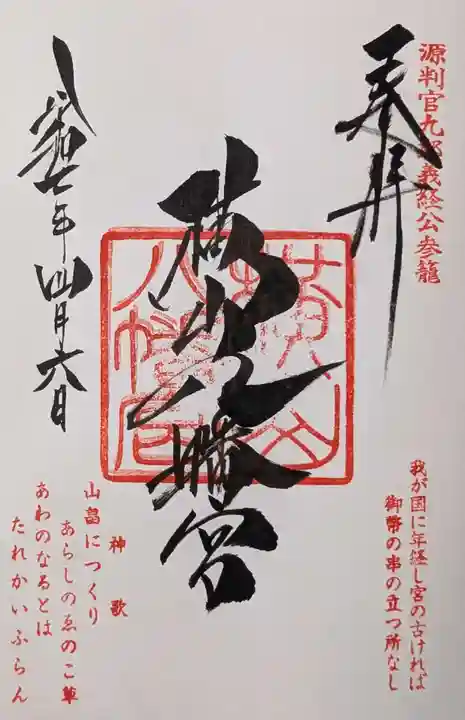 源判官九郎義経公参籠
奉拝
我が国に年経し宮の古ければ
御幣の串の立つ所なし
横山八幡宮
横山
八幡宮
令和七年四月六日
神歌
山畠につくり
あらしのゑのこ草
あわのなるとは
たれかいふらん